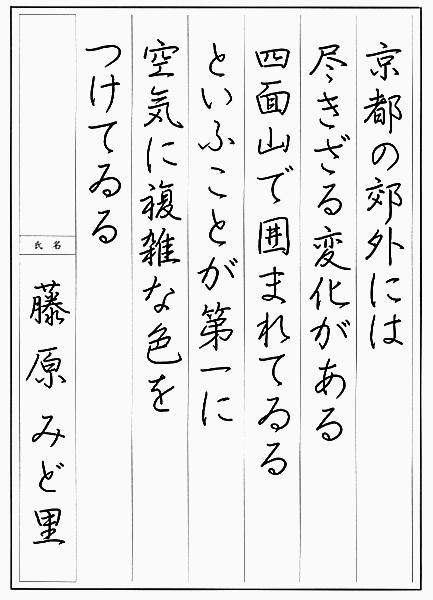 京都の郊外には
尽きざる変化がある
四面山で囲まれてゐる
といふことが第一に
空気に複雑な色を
つけてゐる
氏名
藤原みど里